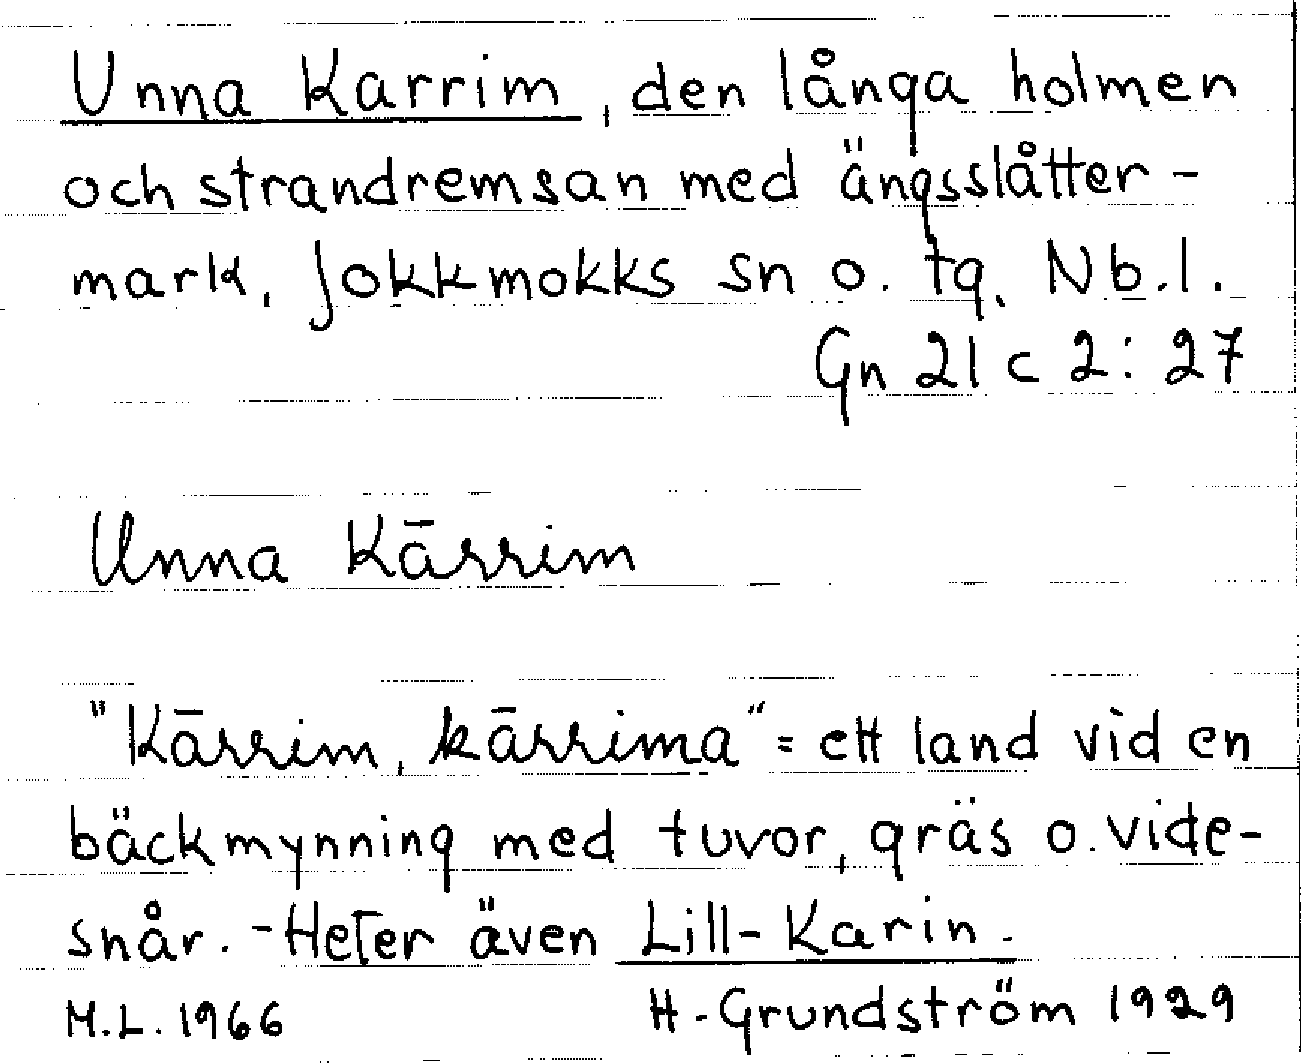 Unna Karrim, den långa holmen
och strandremsan med ängsslåtter-
mark, Jokkmokks sn o. tg. Nb.l.
Gn 21 c 2:27
Unna Kārrim
"Kārrim, kārrima" = ett land vid en
bäckmynning med tuvor, gräs o. vide-
snår. - Heter även Lill-Karin.
M.L. 1966 H. Grundström 1929